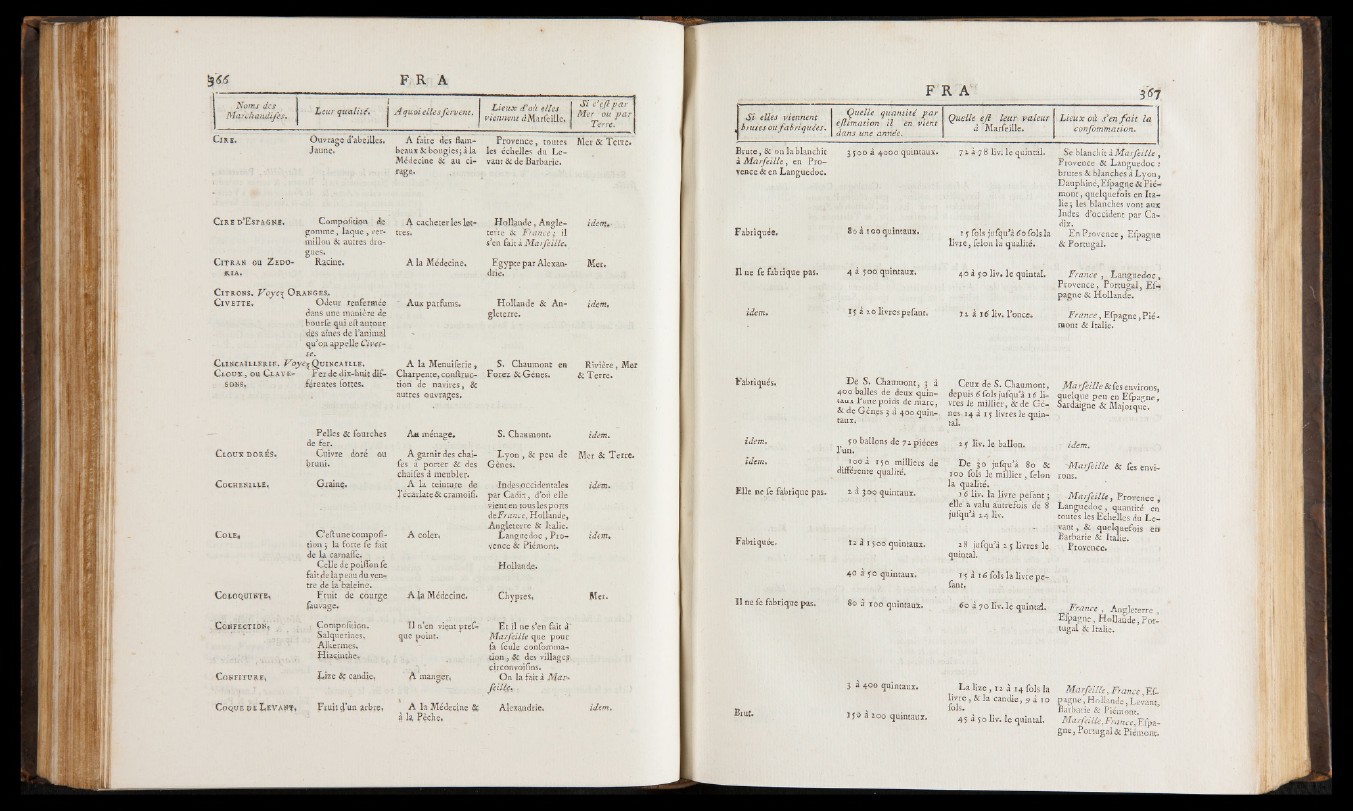 366 FRA
Noms des
Marchandiſes.
Leur qualité.
A quoi elles ſervent.
Lieux d'où elles
viennent à Marſeille.
Si c'eſt par
Mer ou par
Terre.
CIRE.
Ouvrage d'abeilles.
Jaune.
A faire des flam-
beaux & bougies; à la
Médecine & au ci-
rage.
Provence, toutes
les échelles du Le-
vant & de Barbarie.
Mer & Terre.
CIRE D'ESPAGNE.
Compoſition de
gomme, laque, ver-
millon & autres dro-
gues.
A cacheter les let-
tres.
Hollande, Angle-
terre & France; il
s'en fait à Marſeille.
idem.
CITRAN ou ZEDO-
RIA.
Racine.
A la Médecine.
Egypte par Alexan-
drie.
Mer.
CITRONS. Voyez ORANGES.
CIVETTE.
Odeur renfermée
dans une manière de
bourſe qui eſt autour
des aînes de l'animal
qu'on appelle Civet-
te.
Aux parfums.
Hollande & An-
gleterre.
idem.
CLINCAILLERIE. Voyez QUINCAILLE.
CLOUX, OU CLAVE-
SONS.
Fer de dix-huit dif-
férentes ſortes.
A la Menuiſerie,
Charpente, conſtruc-
tion de navires, &
autres ouvrages.
S. Chaumont en
Forez & Gènes.
Rivière, Mer
& Terre.
Pelles & fourches
de fer.
Au ménage.
S. Chaumont.
idem.
CLOUX DORÉS.
Cuivre doré ou
bruni.
A garnir des chai-
ſes à porter & des
chaiſes à meubler.
Lyon, & peu de
Gènes.
Mer & Terre.
COCHENILLE.
Graine.
A la teinture de
l'écarlate & cramoiſi.
Indes occidentales
par Cadix, d'où elle
vient en tous les ports
de France, Hollande,
Angleterre & Italie.
idem.
COLE,
C'eſt une compoſi-
tion; la forte ſe fait
de la carnaſſe.
A coler.
Languedoc, Pro-
vence & Piémont.
idem.
Celle de poiſſon ſe
fait de la peau du ven-
tre de la baleine.
Hollande.
COLOQUINTE,
Fruit de courge
ſauvage.
A la Médecine.
Chypres,
Mer.
CONFECTION,
Compoſition.
Salquerines.
Alkermes.
Hiacinthe.
Il n'en vient preſ-
que point.
Et il ne s'en fait à
Marſeille que pour
ſa ſeule conſomma-
tion, & des villages
circonvoiſins.
CONFITURE,
Lize & candie.
A manger,
On la fait à Mar-
ſeille.
COQUE DE LEVANT,
Fruit d'un arbre.
A la Médecine &
à la Pêche.
Alexandrie.
idem.
FRA 367
Si elles viennent
brutes ou fabriquées.
Quelle quantité par
eſtimation il en vient
dans une année.
Quelle eſt leur valeur
à Marſeille.
Lieux où s'en fait la
conſommation.
Brute, & on la blanchit
à Marſeille, en Pro-
vence & en Languedoc.
3500 à 4000 quintaux.
72 à 78 liv. le quintal.
Se blanchit à Marſeille,
Provence & Languedoc:
brutes & blanches à Lyon,
Dauphiné, Eſpagne & Pié-
mont, quelquefois en Ita-
lie; les blanches vont aux
Indes d'occident par Ca-
dix.
Fabriquée.
80 à 100 quintaux.
15 ſols juſqu'à 60 ſols la
livre, ſelon la qualité.
En Provence, Eſpagne
& Portugal.
Il ne ſe fabrique pas.
4 à 500 quintaux.
40 à 50 liv. le quintal.
France, Languedoc,
Provence, Portugal, Eſ-
pagne & Hollande.
idem.
15 à 20 livres peſant.
12 à 16 liv. l'once.
France, Eſpagne, Pié-
mont & Italie.
Fabriqués.
De S. Chaumont, 3 à
400 balles de deux quin-
taux l'une poids de marc,
& de Gènes 3 à 400 quin-
taux.
Ceux de S. Chaumont,
depuis 6 ſols juſqu'à 16 li-
vres le millier, & de Gé-
nes 14 à 15 livres le quin-
tal.
Marſeille & ſes environs,
quelque peu en Eſpagne,
Sardaigne & Majorque.
idem.
50 ballons de 72 pièces
l'un.
25 liv. le ballon.
idem.
idem.
100 à 150 milliers de
différente qualité.
De 30 juſqu'à 80 &
100 ſols le millier, ſelon
la qualité.
Marſeille & ſes envi-
rons.
Elle ne ſe fabrique pas.
2 à 300 quintaux.
16 liv. la livre peſant;
elle a valu autrefois de 8
juſqu'à 24 liv.
Marſeille, Provence,
Languedoc, quantité en
toutes les Echelles du Le-
vant, & quelquefois en
Barbarie & Italie.
Fabriquée.
12 à 1500 quintaux.
28 juſqu'à 25 livres le
quintal.
Provence.
40 à 50 quintaux.
15 à 16 ſols la livre pe-
ſant.
Il ne ſe fabrique pas.
80 à 100 quintaux.
60 à 70 liv. le quintal.
France, Angleterre,
Eſpagne, Hollande, Por-
tugal & Italie.
3 à 400 quintaux.
La lize, 12 à 14 ſols la
livre, & la candie, 9 à 10
ſols.
Marſeille, France, Eſ-
pagne, Hollande, Levant,
Barbarie & Piémont.
Brut.
150 à 200 quintaux.
45 à 50 liv. le quintal.
Marſeille, France, Eſpa-
gne, Portugal & Piémont.